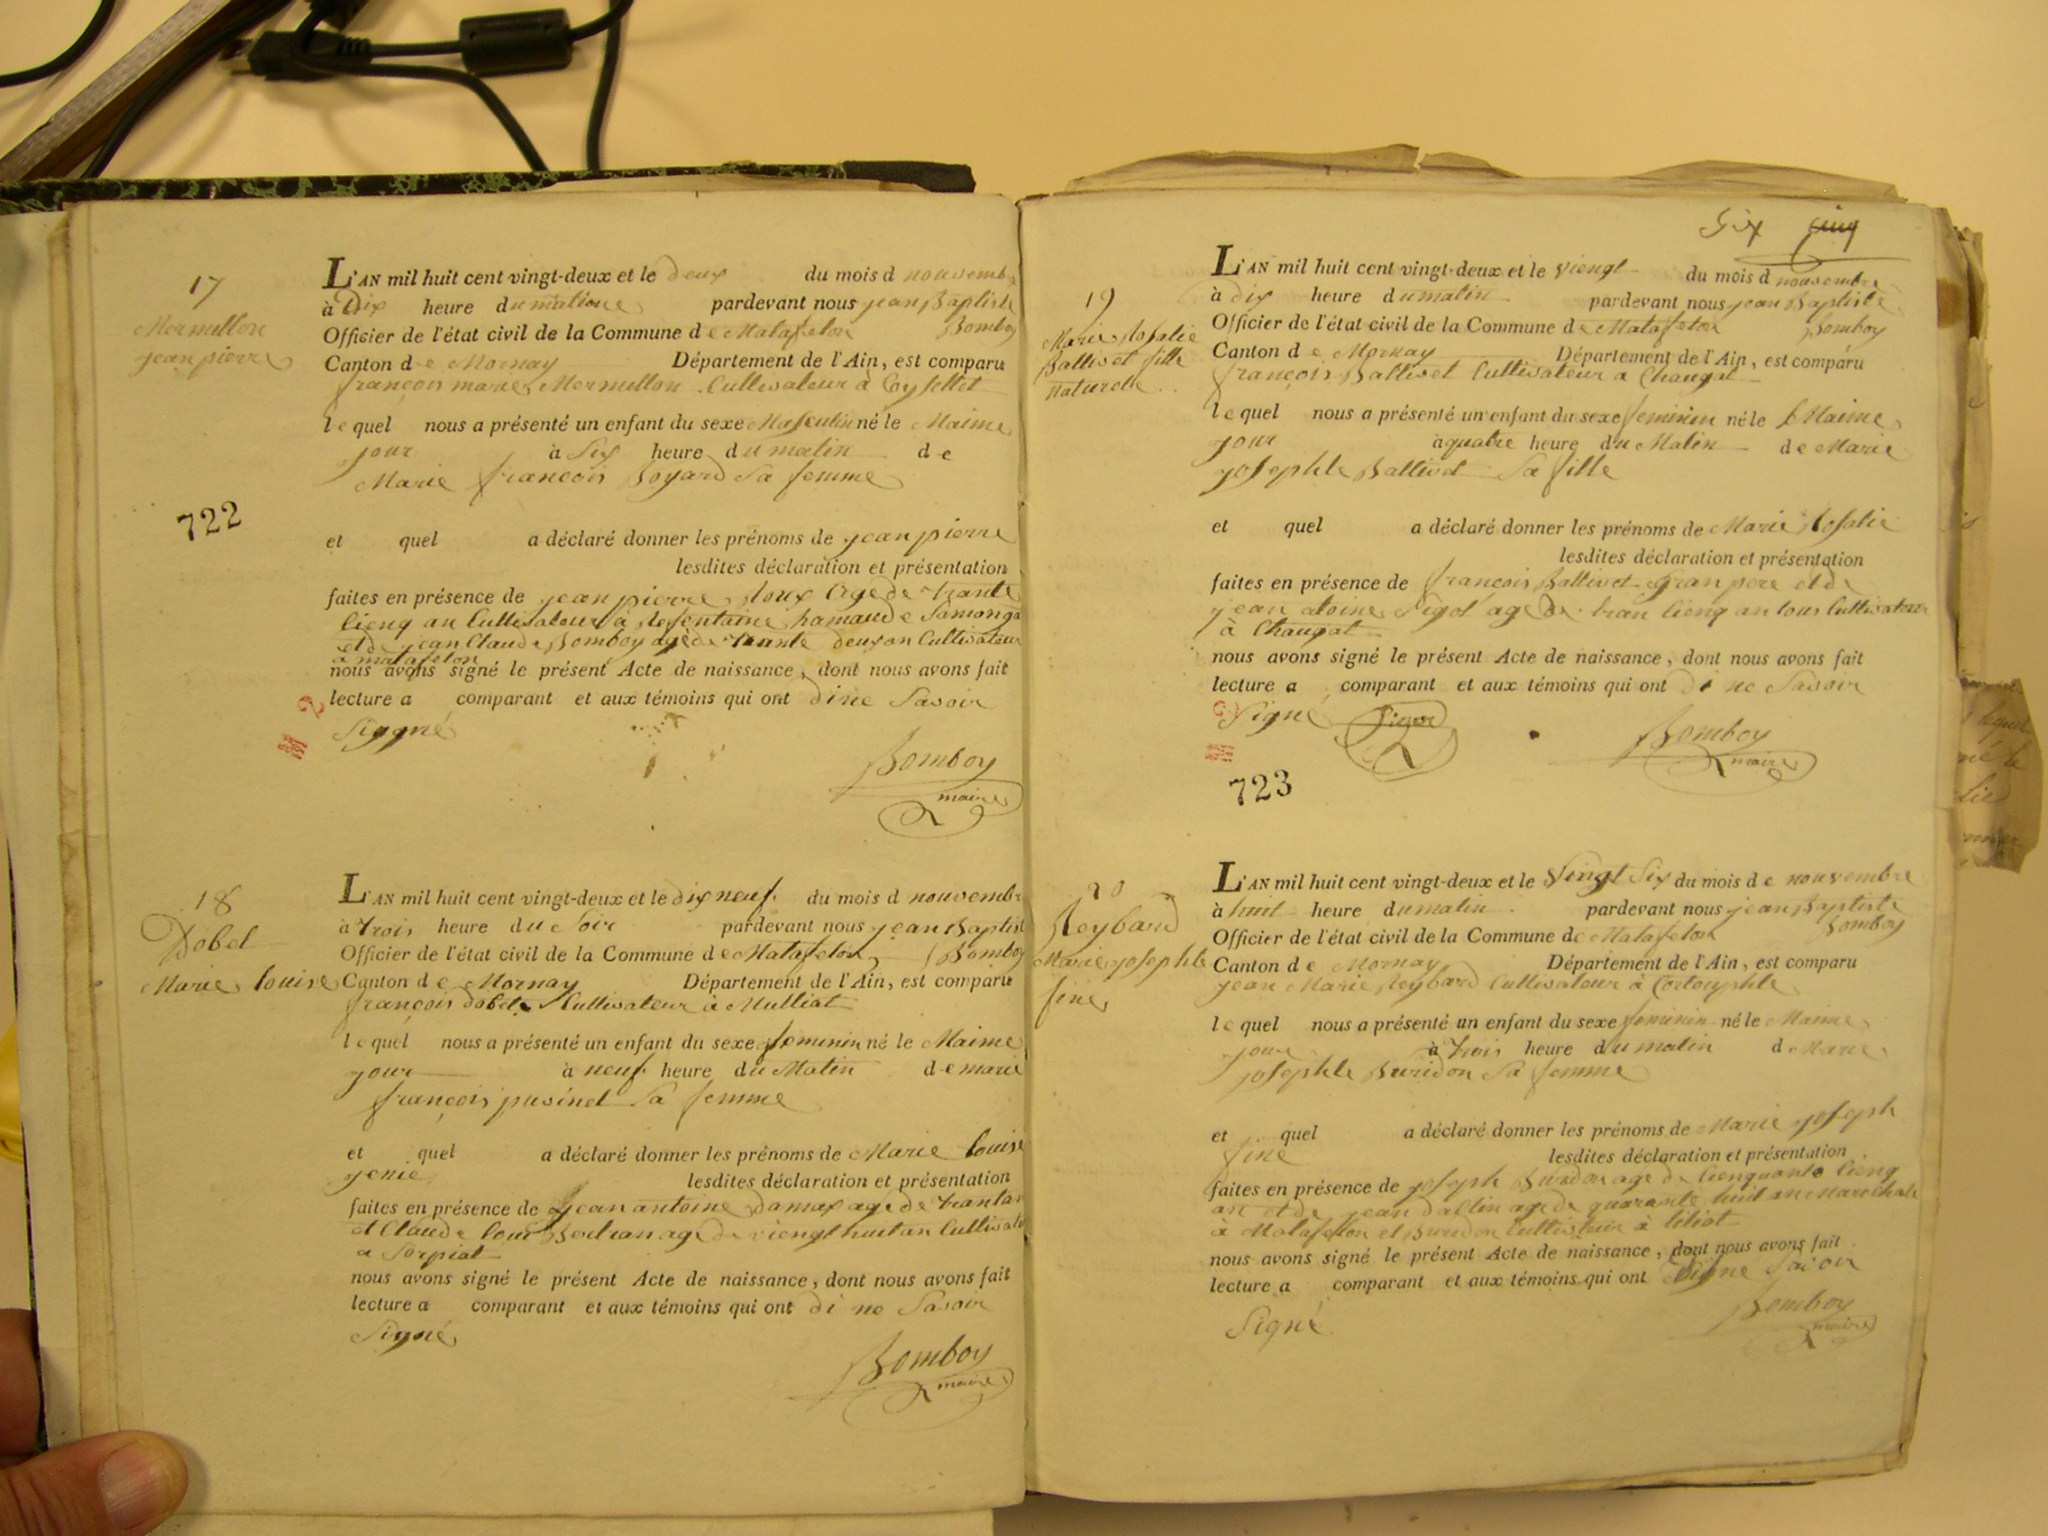 17
Mermillon
jean pierre
L'AN mil huit cent vingt-deux et le deux du mois d nouvembre
à Dix heure du matioue pardevant nous jean Baptiste
Officier de l'état civil de la Commune de Matafelon Bomboy
Canton de Mornay Département de l'Ain, est comparu
françois marie Mermillon Cultivateur à Coysellet
lequel nous a présenté un enfant du sexe Masculin né le Maime
jour à Six heure du matin de
Marie françois Boyard Sa femme
722
et quel a déclaré donner les prénoms de jean pierre
lesdites déclaration et présentation
faites en présence de jean pierre Roux Age de trante
cienq an Cultivateur à hamaude Samonga
et de jean Claude Bomboy agé de trante deux an Cultivateur
a matafelon
nous avons signé le présent Acte de naissance, dont nous avons fait
lecture a comparant et aux témoins qui ont di ne Savoir
Siggné
Bomboy
maire
18
Dobel
Marie louise
L'AN mil huit cent vingt-deux et le dix neuf du mois d nouvembre
à trois heure du Soir pardevant nous jean Baptist
Officier de l'état civil de la Commune de Matafelon Bomboy
Canton de Mornay Département de l'Ain, est comparu
françois dobel Cultivateur à Mulliat
lequel nous a présenté un enfant du sexe feminin né le Maime
jour à neuf heure du Matin de marie
françois pusinet Sa femme
et quel a déclaré donner les prénoms de Marie louise
jenie lesdites déclaration et présentation
faites en présence de jean antoine damax age de trantan
et Claude age de viengt huit an Cultivat
a Sorpiat
nous avons signé le présent Acte de naissance, dont nous avons fait
lecture a comparant et aux témoins qui ont di ne Savoir
Signé
Bomboy
maire
Six cinq
19
Marie Rosalie
Ballivet fille
naturelle
L'AN mil huit cent vingt-deux et le viengt du mois d nouvembre
à dix heure du matin pardevant nous jean Baptiste
Officier de l'état civil de la Commune de Matafelon Bomboy
Canton de Mornay Département de l'Ain, est comparu
françois Ballivet Cultivateur a Chaugat
lequel nous a présenté un enfant du sexe feminin né le l Maime
jour à quatre heure du Matin de Marie
josephte Ballivet Sa fille
et quel a déclaré donner les prénoms de Marie Rosalie
lesdites déclaration et présentation
faites en présence de françois Ballivet gran pere et de
jean atoine Pigot age de tran cienq an tous Cultivateur
à Chaugat
nous avons signé le présent Acte de naissance, dont nous avons fait
lecture a comparant et aux témoins qui ont di ne Savoir
Signé
Bomboy
maire
723
20
Reybard
Marie josephte
fine
L'AN mil huit cent vingt-deux et le Vingt Six du mois de nouvembre
à huit heure du matin pardevant nous jean Baptiste
Officier de l'état civil de la Commune de Matafelon Bomboy
Canton de Mornay Département de l'Ain, est comparu
jean Marie Reybard Cultivateur à Cortouphle
lequel nous a présenté un enfant du sexe feminin né le Maime
jour à trois heure du matin d Marie
josephte Buridon Sa femme
et quel a déclaré donner les prénoms de Marie joseph
fine lesdites déclaration et présentation
faites en présence de joseph Burdon age de cienquante cienq
an et de jean dallin age de quarante huit an Marechal
à Matafelon et Burdon Cultivateur à
nous avons signé le présent Acte de naissance, dont nous avons fait
lecture a comparant et aux témoins qui ont di ne Savoir
Signé
Bomboy
maire